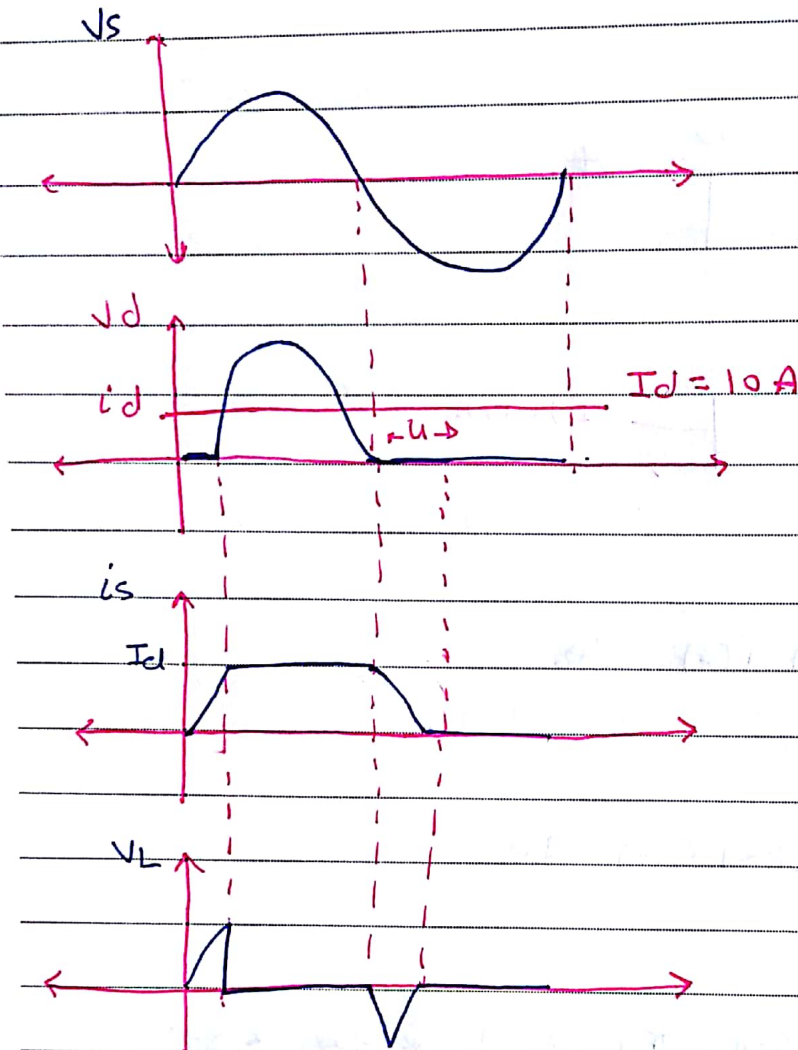 Vs
Vd
id
Id = 10 A
u
is
Id
VL